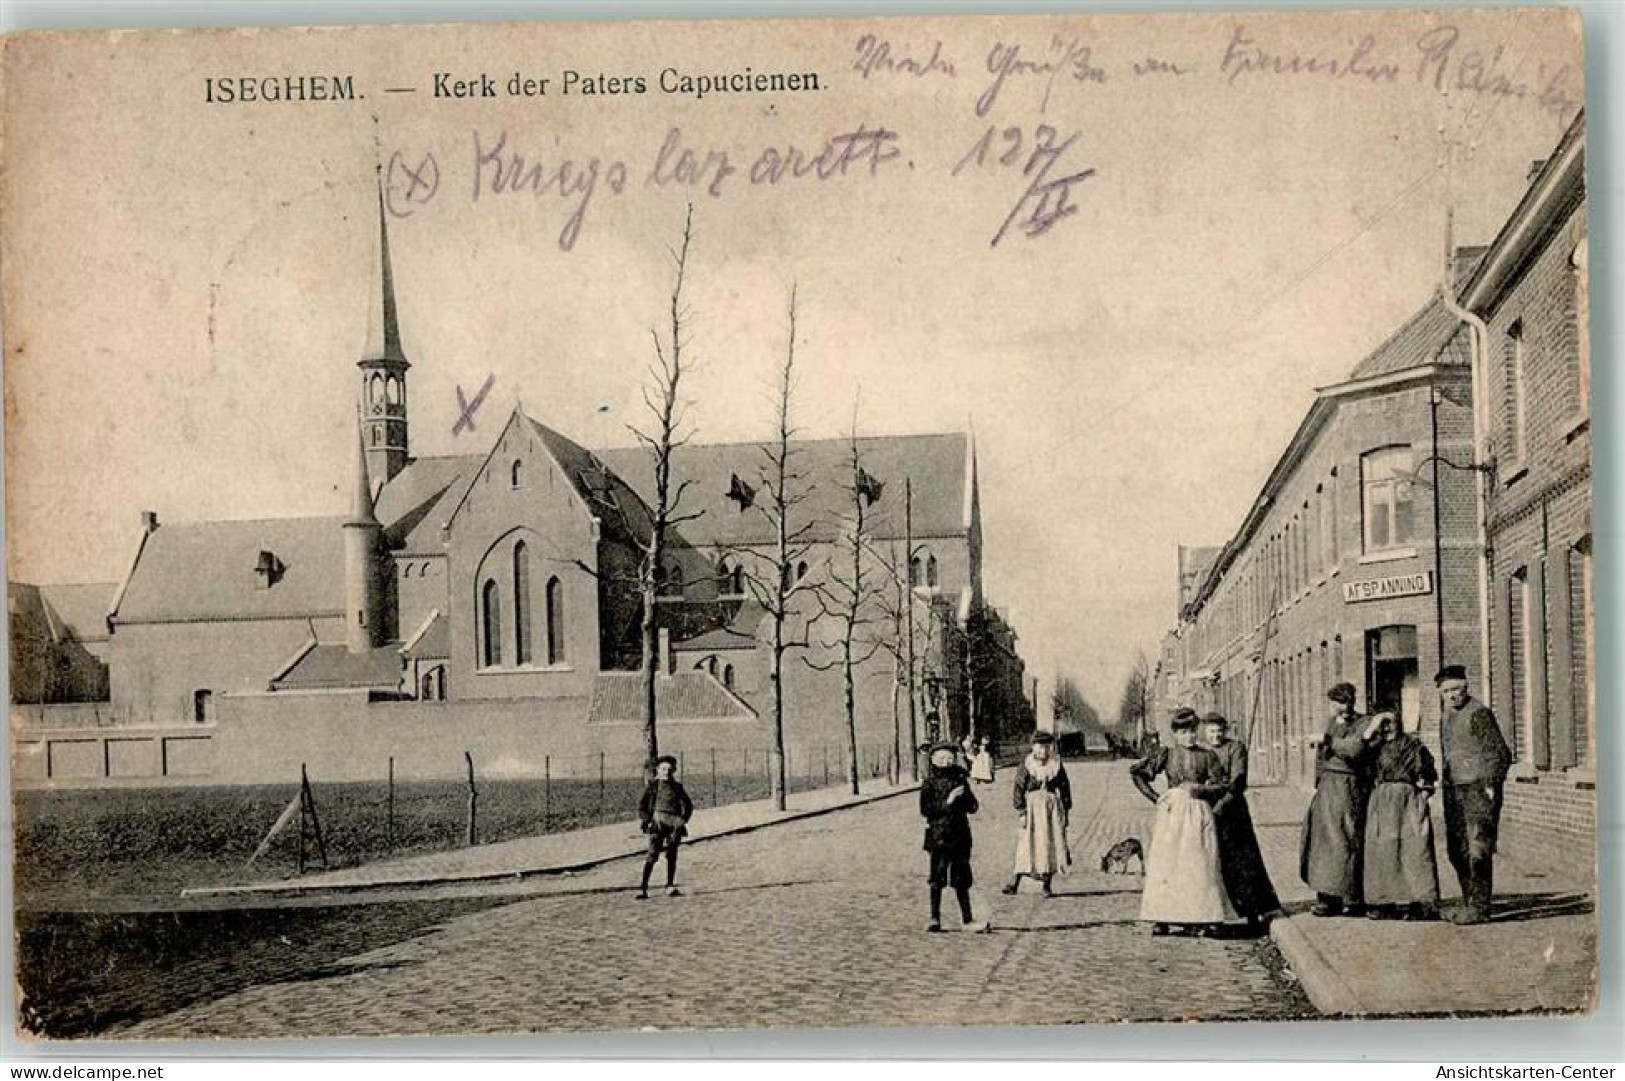 ISEGHEM. — Kerk der Paters Capucienen.
Viele Grüße an Familie
(x) Kriegslazarett. 127/II
x
AFSPANNING
www.delcampe.net
Ansichtskarten-Center